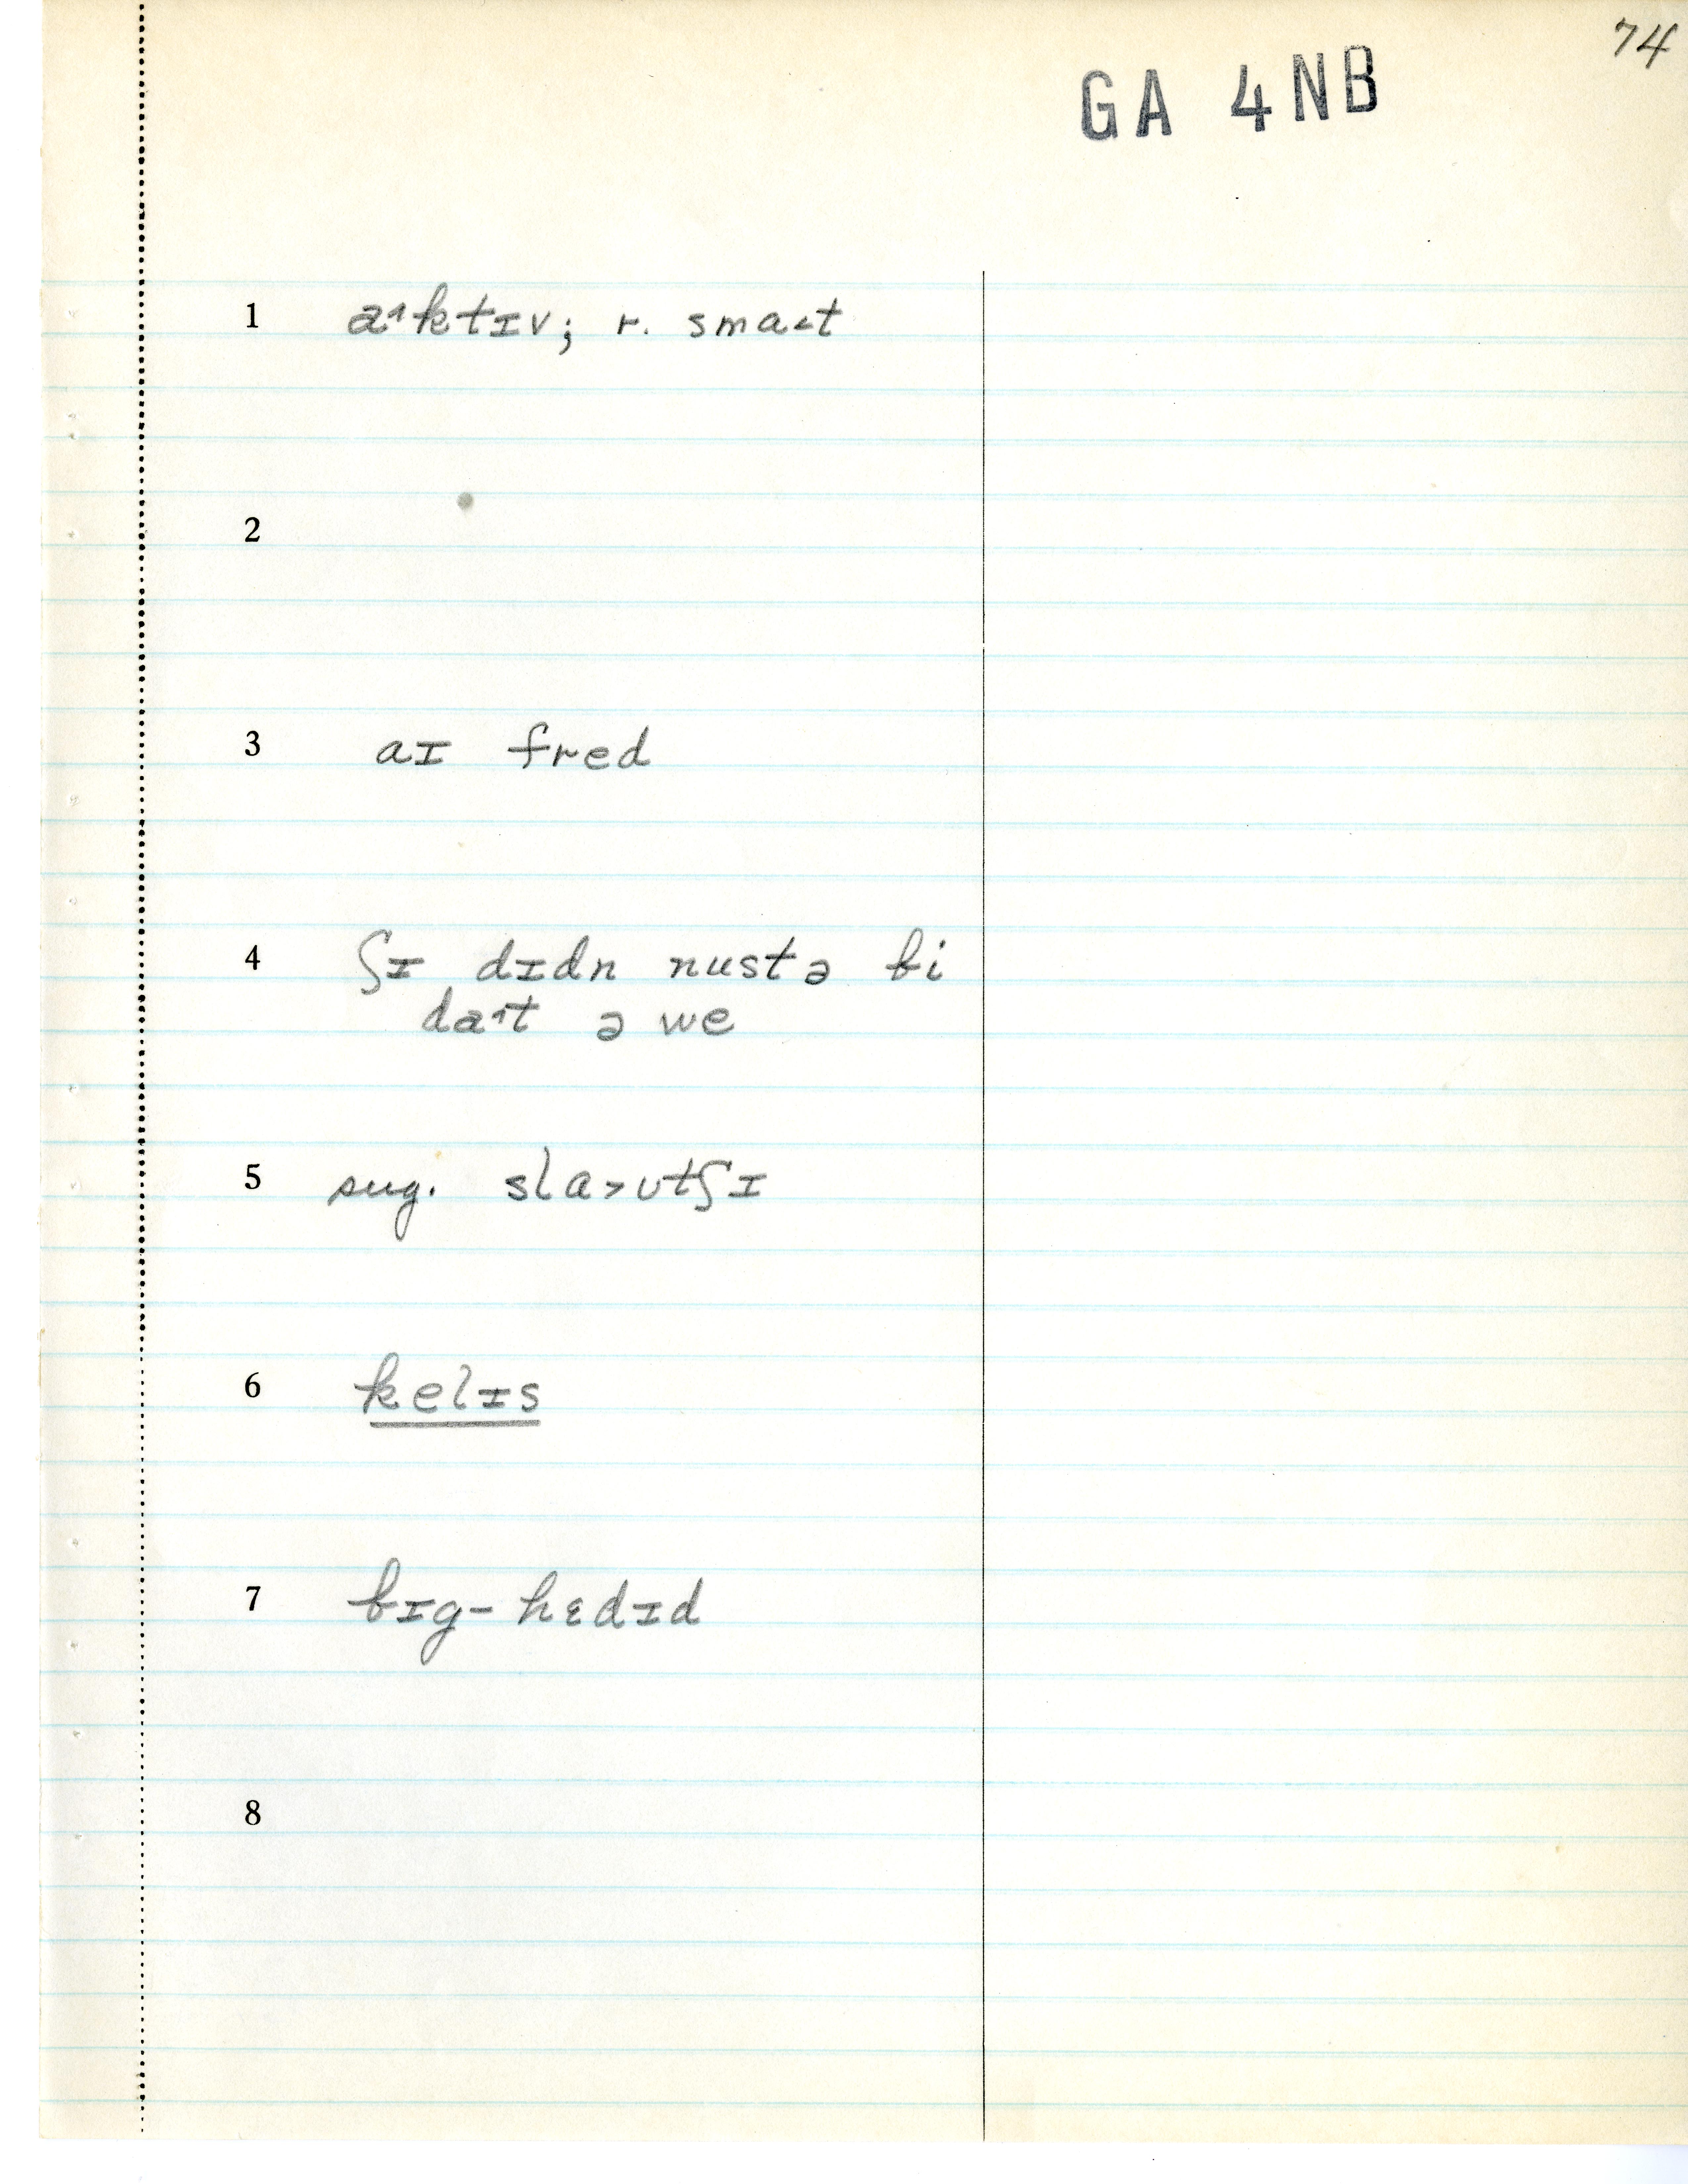 74
GA 4NB
1 a˄ktɪv; r. sma˂t
2
3 aɪ fred
4 ʃɪ dɪdn nustə bi
da˄t ə we
5 sug. sla˃ʊtʃɪ
6 kelɪs
7 bɪg-hɛdɪd
8